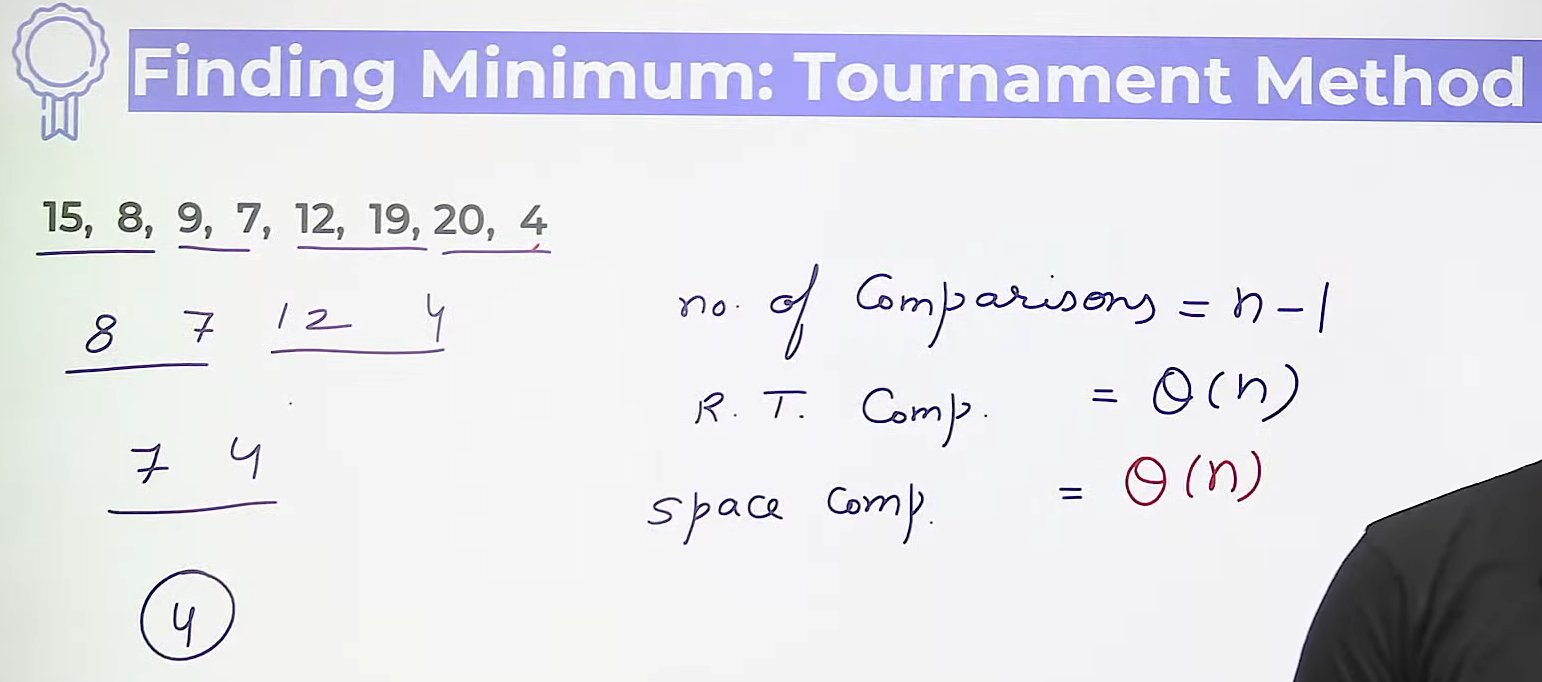 Finding Minimum: Tournament Method
15, 8, 9, 7, 12, 19, 20, 4
8 7 12 4
7 4
4
no. of Comparisons = n-1
R. T. Comp. = Θ(n)
space comp. = Θ(n)